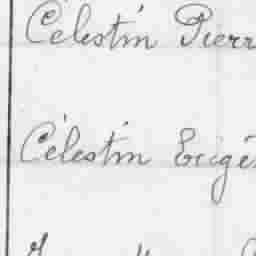 Célestin Pierr
Célestin Erigé